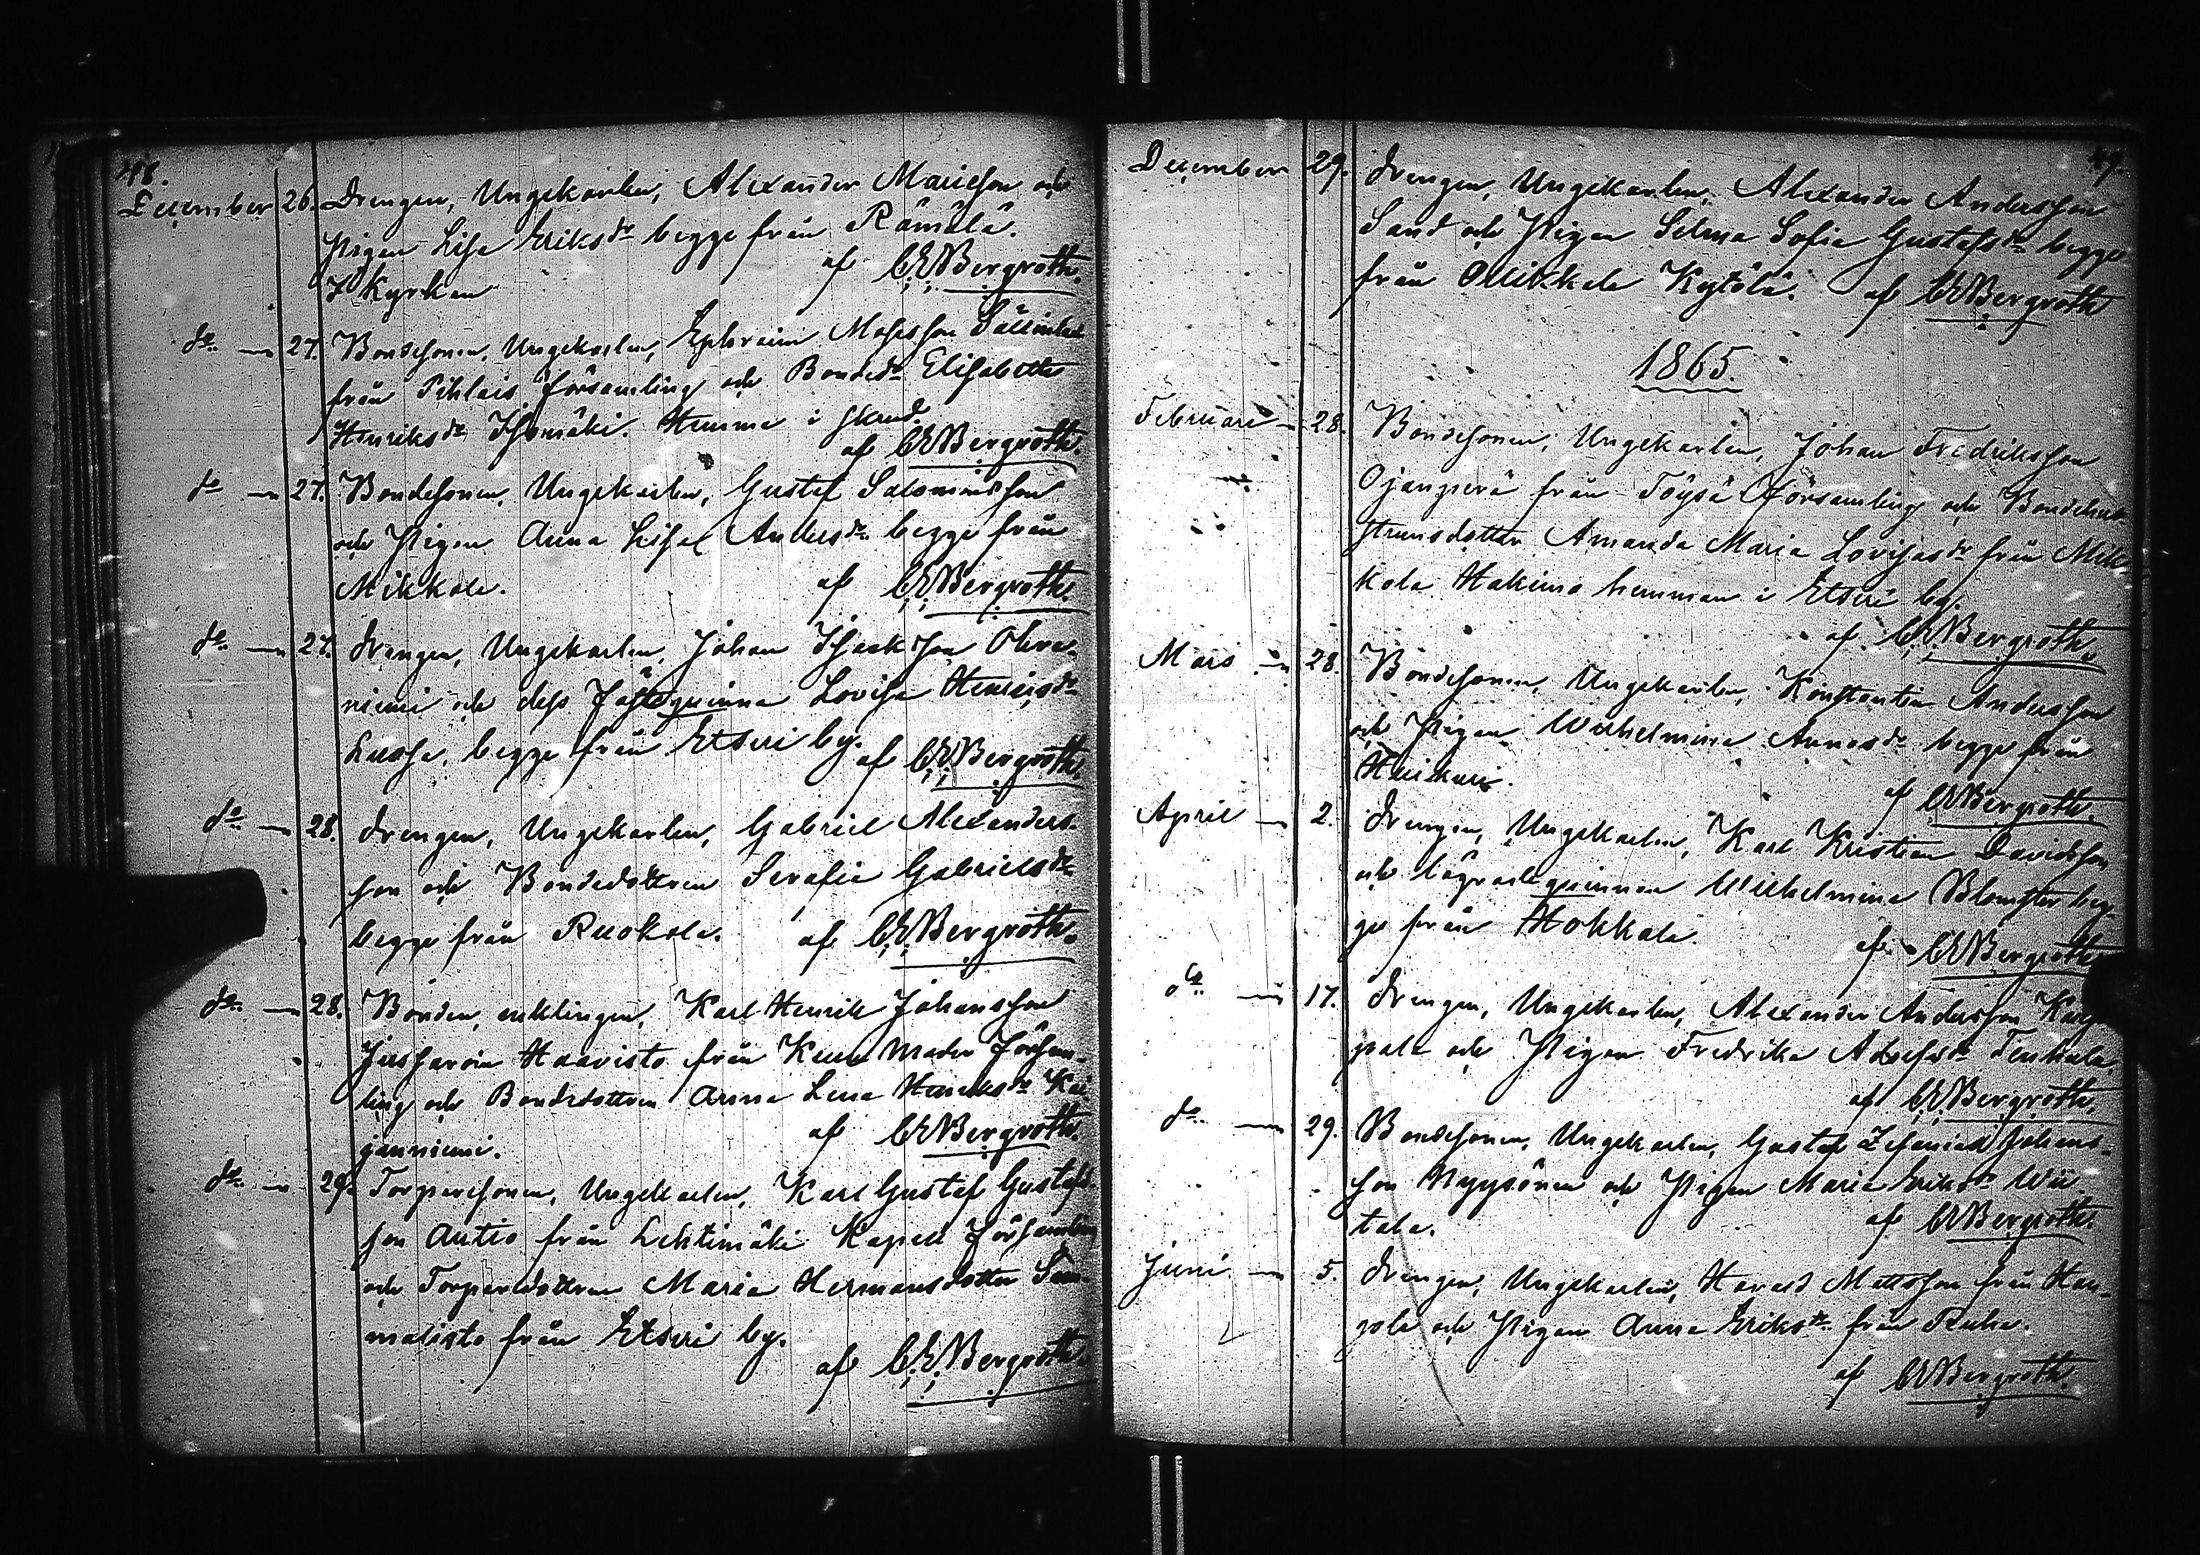 48.
December 26. Drengen, Ungekarlen, Alexander Mariæson och
Pigan Lisa Eriksdr begge från Rämälä.
I Kyrkan af C. E. Bergroth.
do — 27. Bondesonen, Ungekarlen, Ephraim Mosesson
från Pihlais församling och Bondedr Elisabeth
Henriksdr Isomäki. Hemma i
af C. E. Bergroth.
do — 27. Bondesonen, Ungekarlen, Gustaf Salomonsson
och Pigan Anna Lisa Andersdr begge från
Mikkola. af C. E. Bergroth.
do — 27. Drengen, Ungekarlen, Johan Isaksson Oiva-
niemi och dess Fästeqvinna Lovisa Henricsdr
Lassa, begge från Etseri by. af C. E. Bergroth.
do — 28. Drengen, Ungekarlen, Gabriel Alexanders-
son och Bondedottren Serafia Gabrielsdr
begge från Ruokola. af C. E. Bergroth.
do — 28. Bonden, enklingen, Karl Henrik Johansson
Haavisto från Keuru Moder Försam-
ling och Bondedottren Anna Lena Henriksdr Kai-
janniemi. af C. E. Bergroth.
do — 29. Torparesonen, Ungekarlen, Karl Gustaf Gustafs-
son Autio från Lehtimäki Kapell Församling
och Torparedottren Maria Hermansdotter Sam-
malisto från Etseri by.
af C. E. Bergroth.
49.
December 29. Drengen, Ungekarlen, Alexander Andersson
Sand och Pigan Selma Sofia Gustafsdr begge
från Mikkola Kytölä. af C. E. Bergroth
1865.
Februari — 28. Bondesonen, Ungekarlen, Johan Fredriksson
Ojanperä från Töysä församling och Bondehu-
strunsdotter Amanda Maria Lovisasdr från Mik-
kola Hakimo hemman i Etseri by.
af C. E. Bergroth.
Mars — 28. Bondesonen, Ungekarlen, Konstantin Andersson
och Pigan Wilhelmina Annasdr begge från
af C E Bergroth.
April — 2. Drengen, Ungekarlen, Karl Kristian Davidsson
och lägradeqvinnan Wilhelmina Blomster beg-
ge från Hokkala. af C E Bergroth.
do — 17. Drengen, Ungekarlen, Alexander Andersson Karja-
pala och Pigan Fredrika Adolfsdr
af C E Bergroth.
do — 29. Bondesonen, Ungekarlen, Gustaf Zefanias Johans-
son Nyyssönen och Pigan Maria Eriksdr Wii-
tala. af C E Bergroth.
Juni — 5. Drengen, Ungekarlen, Harald Mattsson från Han-
pola och Pigan Anna Eriksdr från Ruha.
af C E Bergroth.